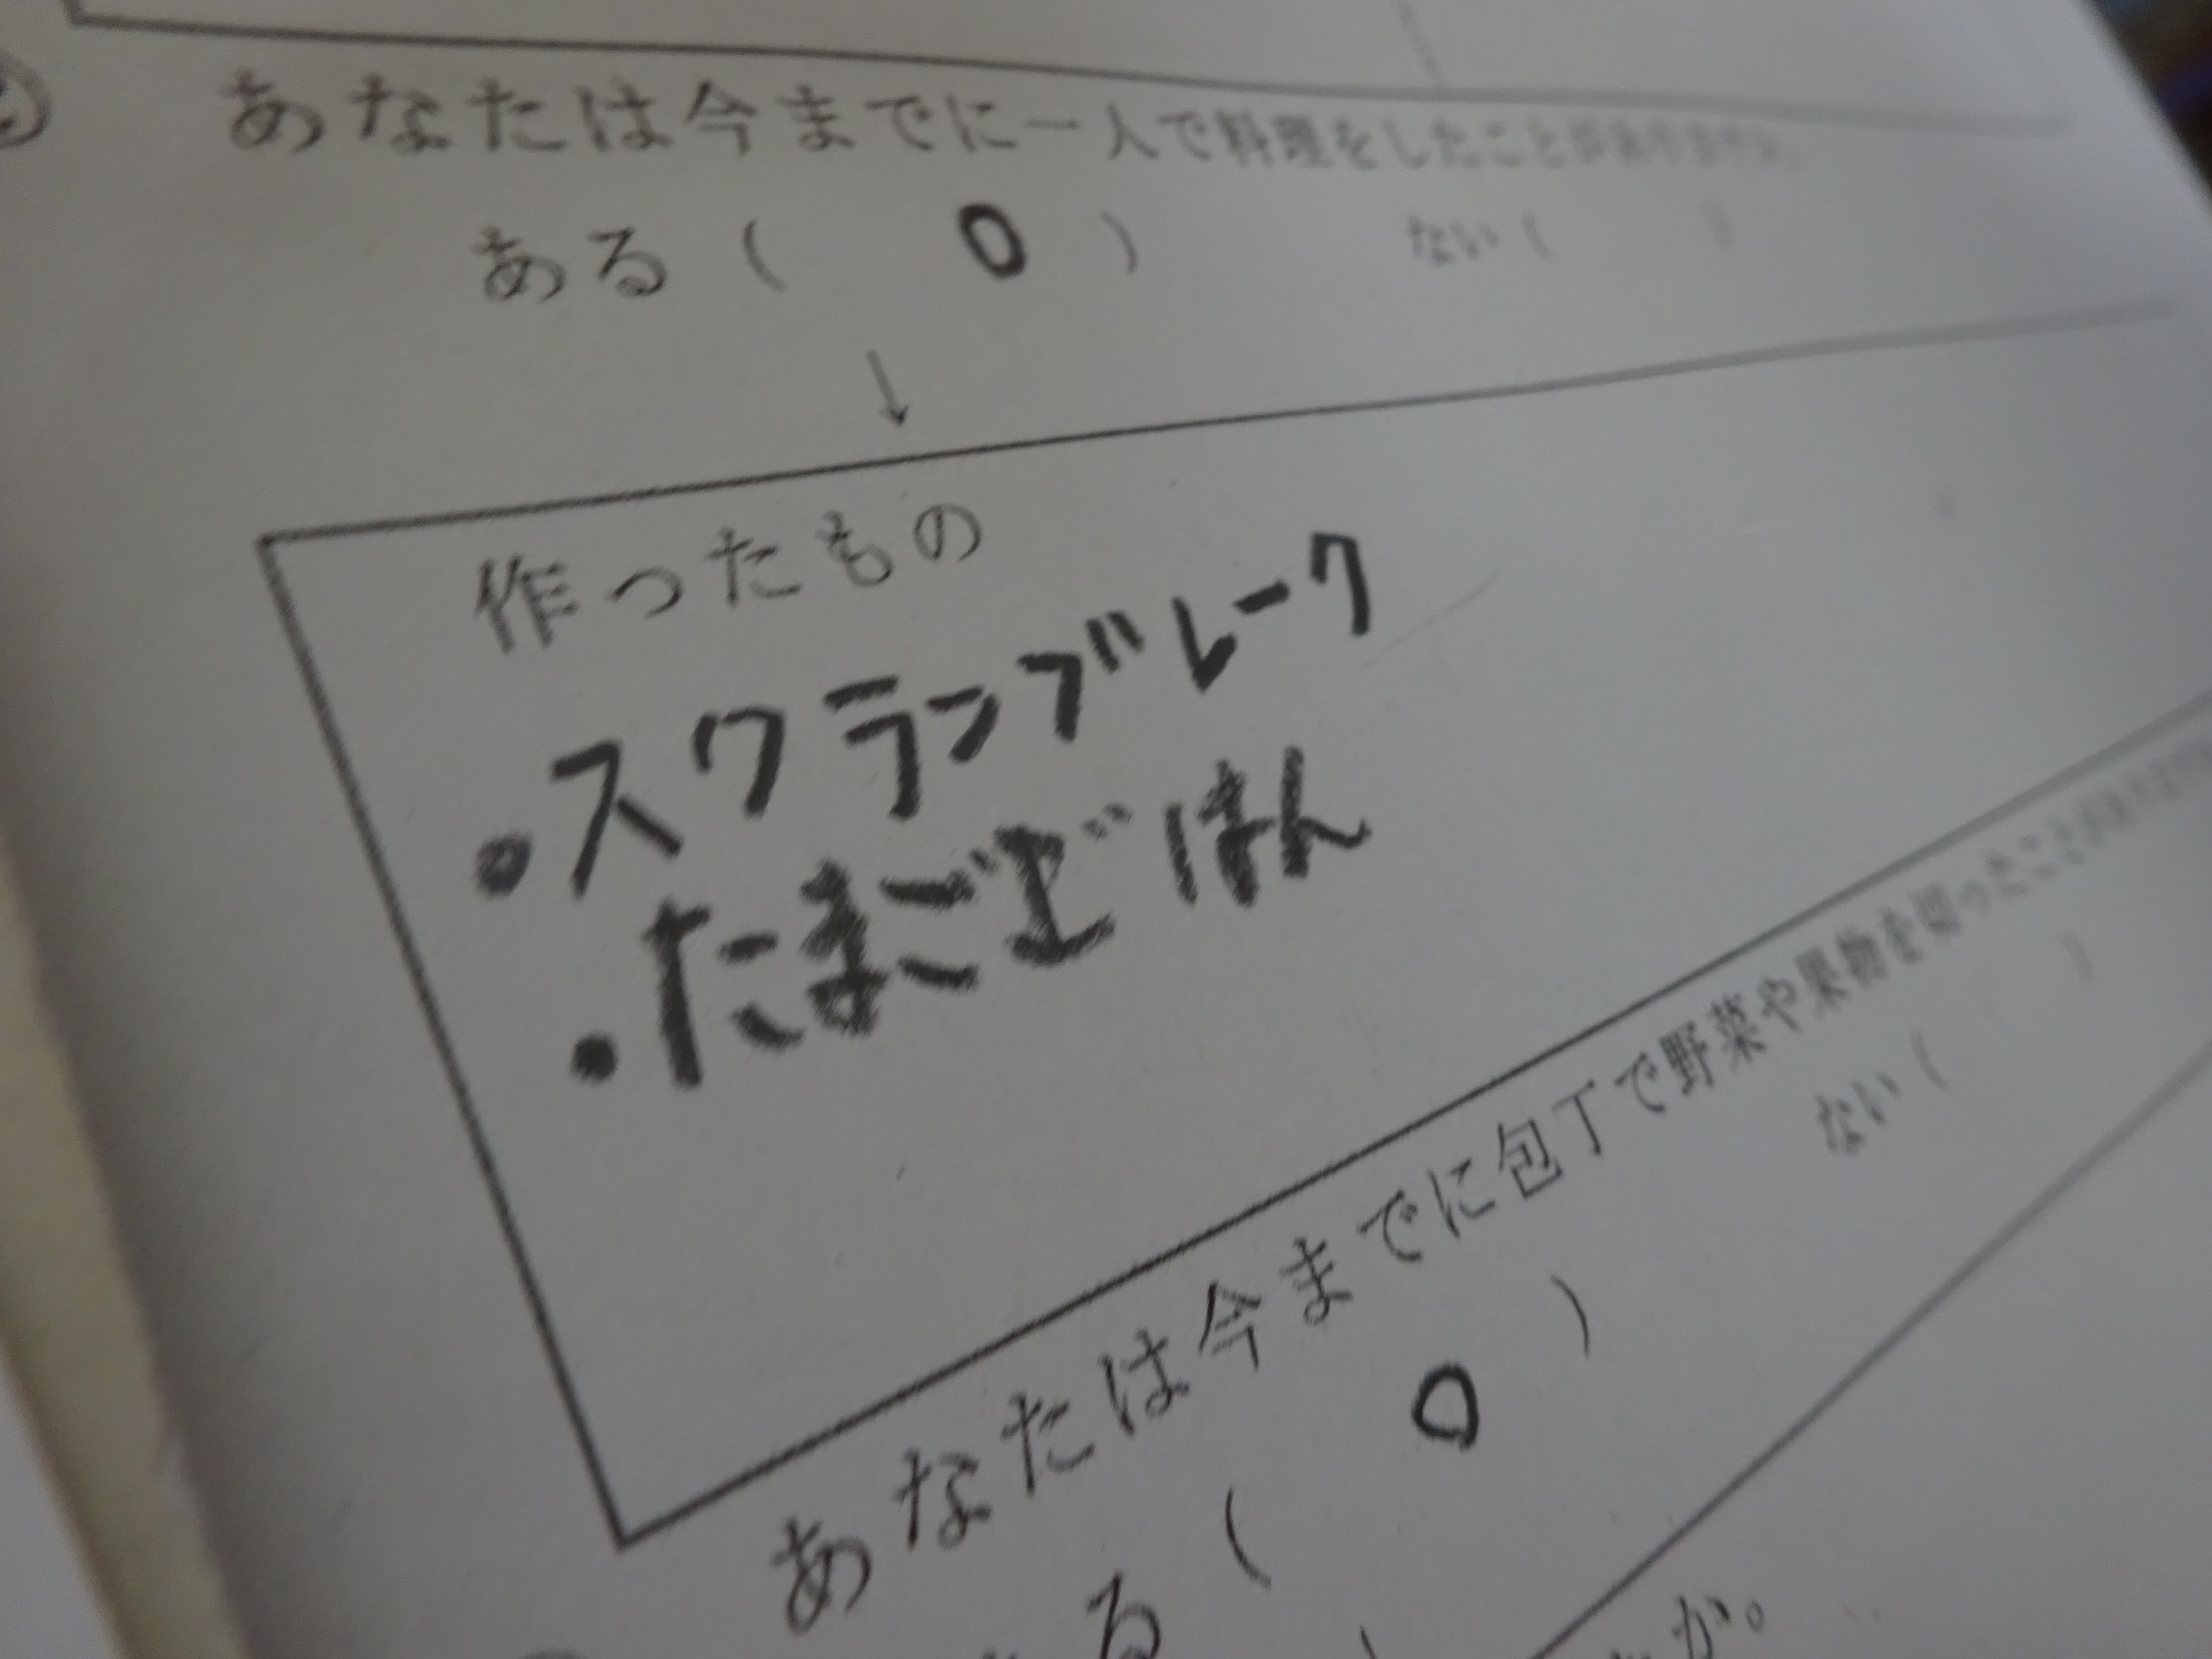 あなたは今までに一人で料理をしたことがありますか。
ある( 0 ) ない( )
↓
作ったもの
・スクランブレーク
・たまごごはん
あなたは今までに包丁で野菜や果物を切ったことが
ある( 0 ) ない( )
か。